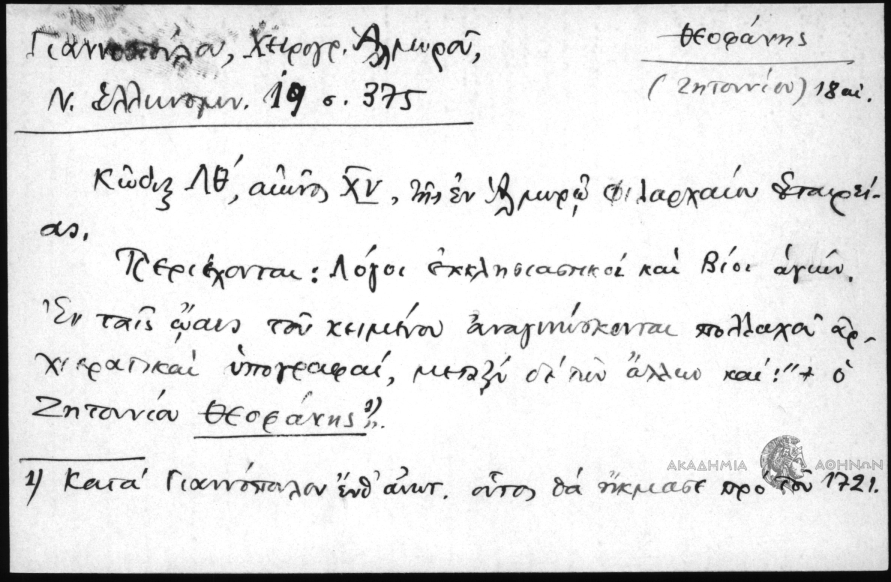 Γιαννοπούλου, Χειρογρ. Ἁλμυροῦ,
Ν. Ἑλληνομν. 19 σ. 375
Θεοφάνης
(Ζητουνίου) 18 αἰ.
Κῶδιξ ΛΘ´, αἰῶνος XV, τῆς ἐν Ἁλμυρῷ Φιλαρχαίου Ἑταιρεί-
ας.
Περιέχονται: Λόγοι ἐκκλησιαστικοί καὶ Βίοι ἁγίων.
Ἐν ταῖς ᾤαις τοῦ κειμένου ἀναγινώσκονται πολλαχοῦ ἀρ-
χιερατικαὶ ὑπογραφαί, μεταξύ δὲ τῶν ἄλλων καί: "+ ὁ
Ζητουνίου Θεοφάνης¹⁾".
1) Κατά Γιαννόπουλον ἔνθ' ἀνωτ. οὗτος θά ἤκμασε προ τοῦ 1721.
ΑΚΑΔΗΜΙΑ ΑΘΗΝΩΝ